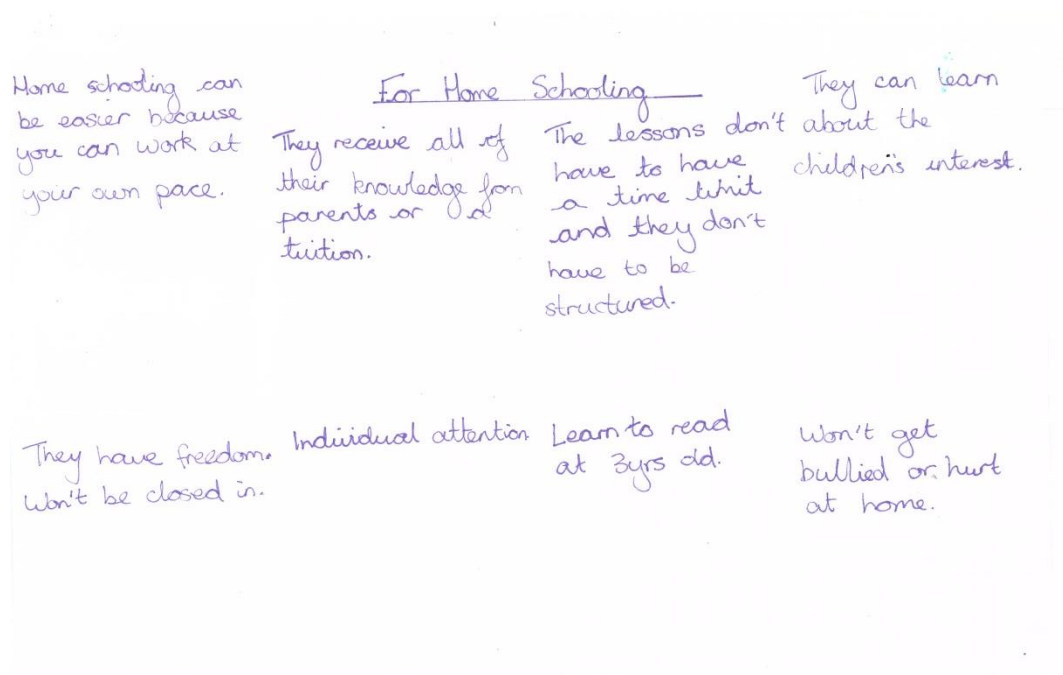 For Home Schooling
Home schooling can
be easier because
you can work at
your own pace.
They receive all of
their knowledge from
parents or a
tuition.
The lessons don't
have to have
a time limit
and they don't
have to be
structured.
They can learn
about the
children's interest.
They have freedom.
Won't be closed in.
Individual attention
Learn to read
at 3yrs old.
Won't get
bullied or hurt
at home.